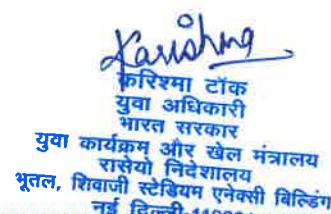 Karishma
करिश्मा टॉक
युवा अधिकारी
भारत सरकार
युवा कार्यक्रम और खेल मंत्रालय
रासेयो निदेशालय
भूतल, शिवाजी स्टेडियम एनेक्सी बिल्डिंग
नई दिल्ली